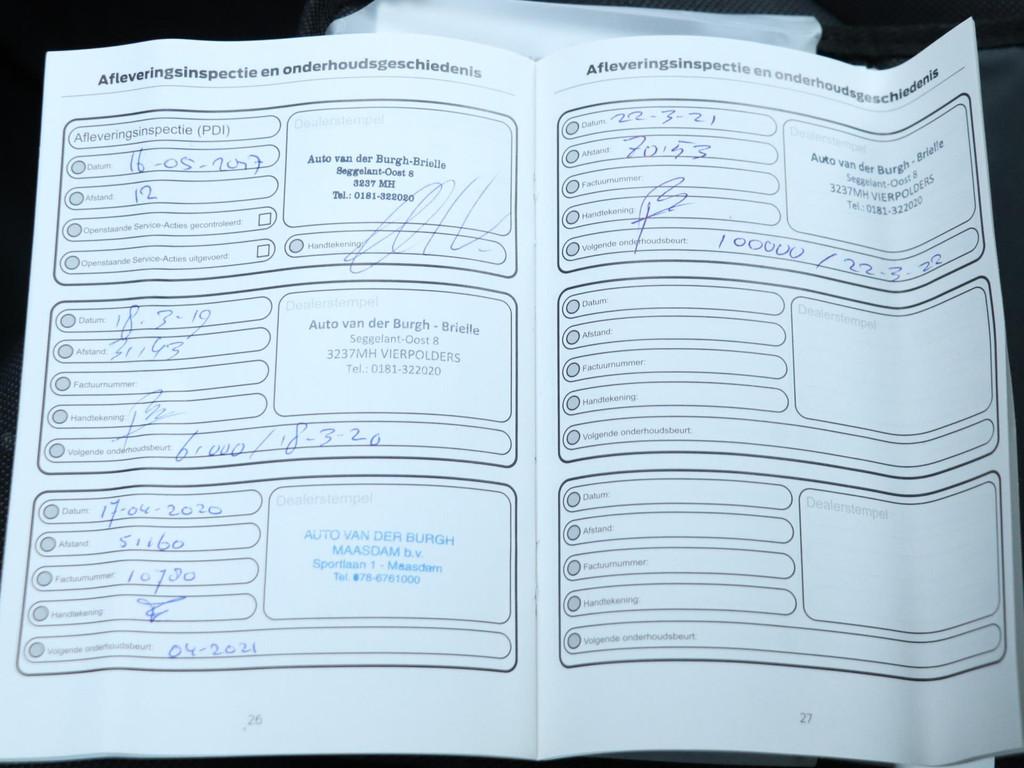 Afleveringsinspectie en onderhoudsgeschiedenis
Afleveringsinspectie (PDI)
Datum: 16-05-2017
Afstand: 12
Openstaande Service-Acties gecontroleerd:
Openstaande Service-Acties uitgevoerd:
Dealerstempel
Auto van der Burgh-Brielle
Seggelant-Oost 8
3237 MH
Tel.: 0181-322020
Handtekening:
Datum: 18-3-19
Afstand: 31143
Factuurnummer:
Handtekening:
Volgende onderhoudsbeurt: 61000 / 18-3-20
Dealerstempel
Auto van der Burgh - Brielle
Seggelant-Oost 8
3237MH VIERPOLDERS
Tel.: 0181-322020
Datum: 17-04-2020
Afstand: 51160
Factuurnummer: 10780
Handtekening:
Volgende onderhoudsbeurt: 04-2021
Dealerstempel
AUTO VAN DER BURGH
MAASDAM b.v.
Sportlaan 1 - Maasdam
Tel. 078-6761000
26
Afleveringsinspectie en onderhoudsgeschiedenis
Datum: 22-3-21
Afstand: 70153
Factuurnummer:
Handtekening:
Volgende onderhoudsbeurt: 100000 / 22-3-22
Dealerstempel
Auto van der Burgh - Brielle
Seggelant-Oost 8
3237MH VIERPOLDERS
Tel.: 0181-322020
Datum:
Afstand:
Factuurnummer:
Handtekening:
Volgende onderhoudsbeurt:
Dealerstempel
Datum:
Afstand:
Factuurnummer:
Handtekening:
Volgende onderhoudsbeurt:
Dealerstempel
27